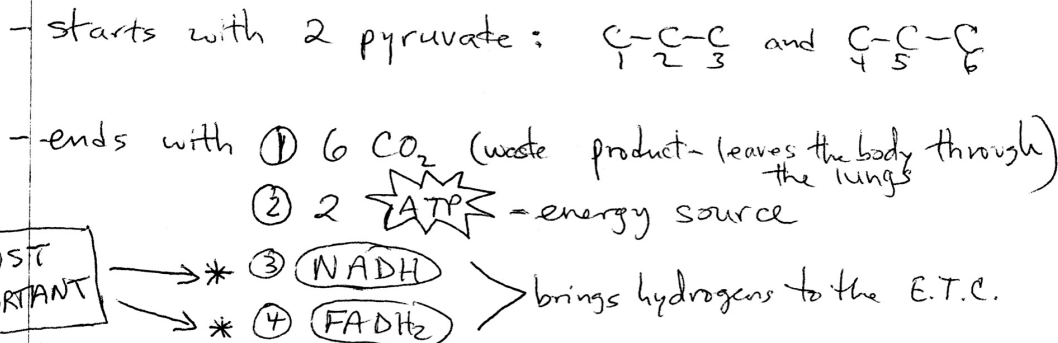 - starts with 2 pyruvate: C-C-C and C-C-C
1 2 3 4 5 6
- ends with ① 6 CO₂ (waste product - leaves the body through
the lungs)
② 2 ATP - energy source
* ③ NADH
* ④ FADH₂
brings hydrogens to the E.T.C.